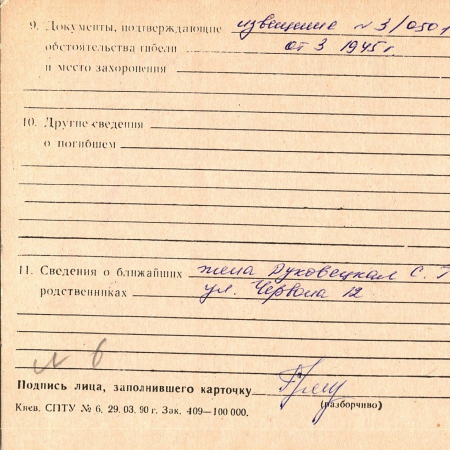 9. Документы, подтверждающие извещение № 3/0501
обстоятельства гибели от 3 1945 г.
и место захоронения
10. Другие сведения
о погибшем
11. Сведения о ближайших жена Духовецкая С. Т
родственниках ул. Червона 12
№ 6
Подпись лица, заполнившего карточку
(разборчиво)
Киев. СПТУ № 6. 29. 03. 90 г. Зак. 409—100 000.